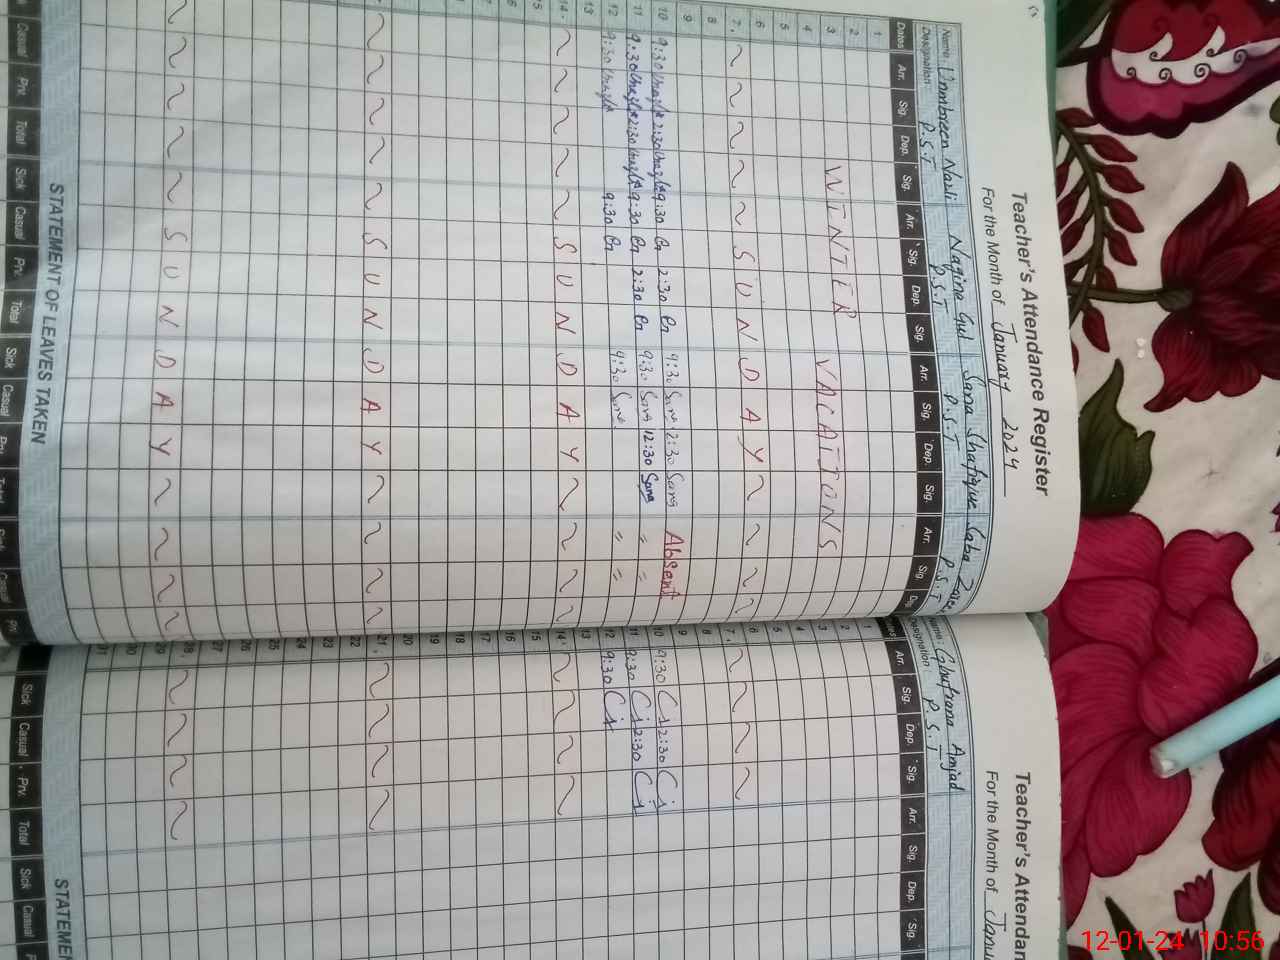 Teacher's Attendance Register
For the Month of January 2024
Name: Nazli Nagina Gul Sana Shafique Saba
Designation: P.S.T P.S.T P.S.T P.S.T
Dates Arr. Sig. Dep. Sig. Arr. Sig. Dep. Sig. Arr. Sig. Dep. Sig. Arr. Sig. Dep.
1
2
3 WINTER VACATIONS
4
5
6
7 SUNDAY
8
9
10 9:30 2:30 9:30 2:30 9:30 2:30 Absent
11 9:30 2:30 9:30 2:30 9:30 Sana 12:30 Sana = =
12 9:30 9:30 9:30 Sana = =
13
14 SUNDAY
15
16
SUNDAY
SUNDAY
STATEMENT OF LEAVES TAKEN
Casual Prv. Total Sick Casual Prv. Total Sick Casual Prv. Total Sick Casual Prv.
Teacher's Attendan
For the Month of Janu
Name: Ghufrana Amjad
Designation: P.S.T
Arr. Sig. Dep. Sig. Arr. Sig. Dep. Sig.
1
2
3
4
5
6
7
8
9
10 9:30 2:30
11 9:30 2:30
12 9:30
13
14
15
16
17
18
19
20
21
22
23
24
25
26
27
28
29
30
31
STATEMEN
Sick Casual Prv. Total Sick Casual
12-01-24 10:56